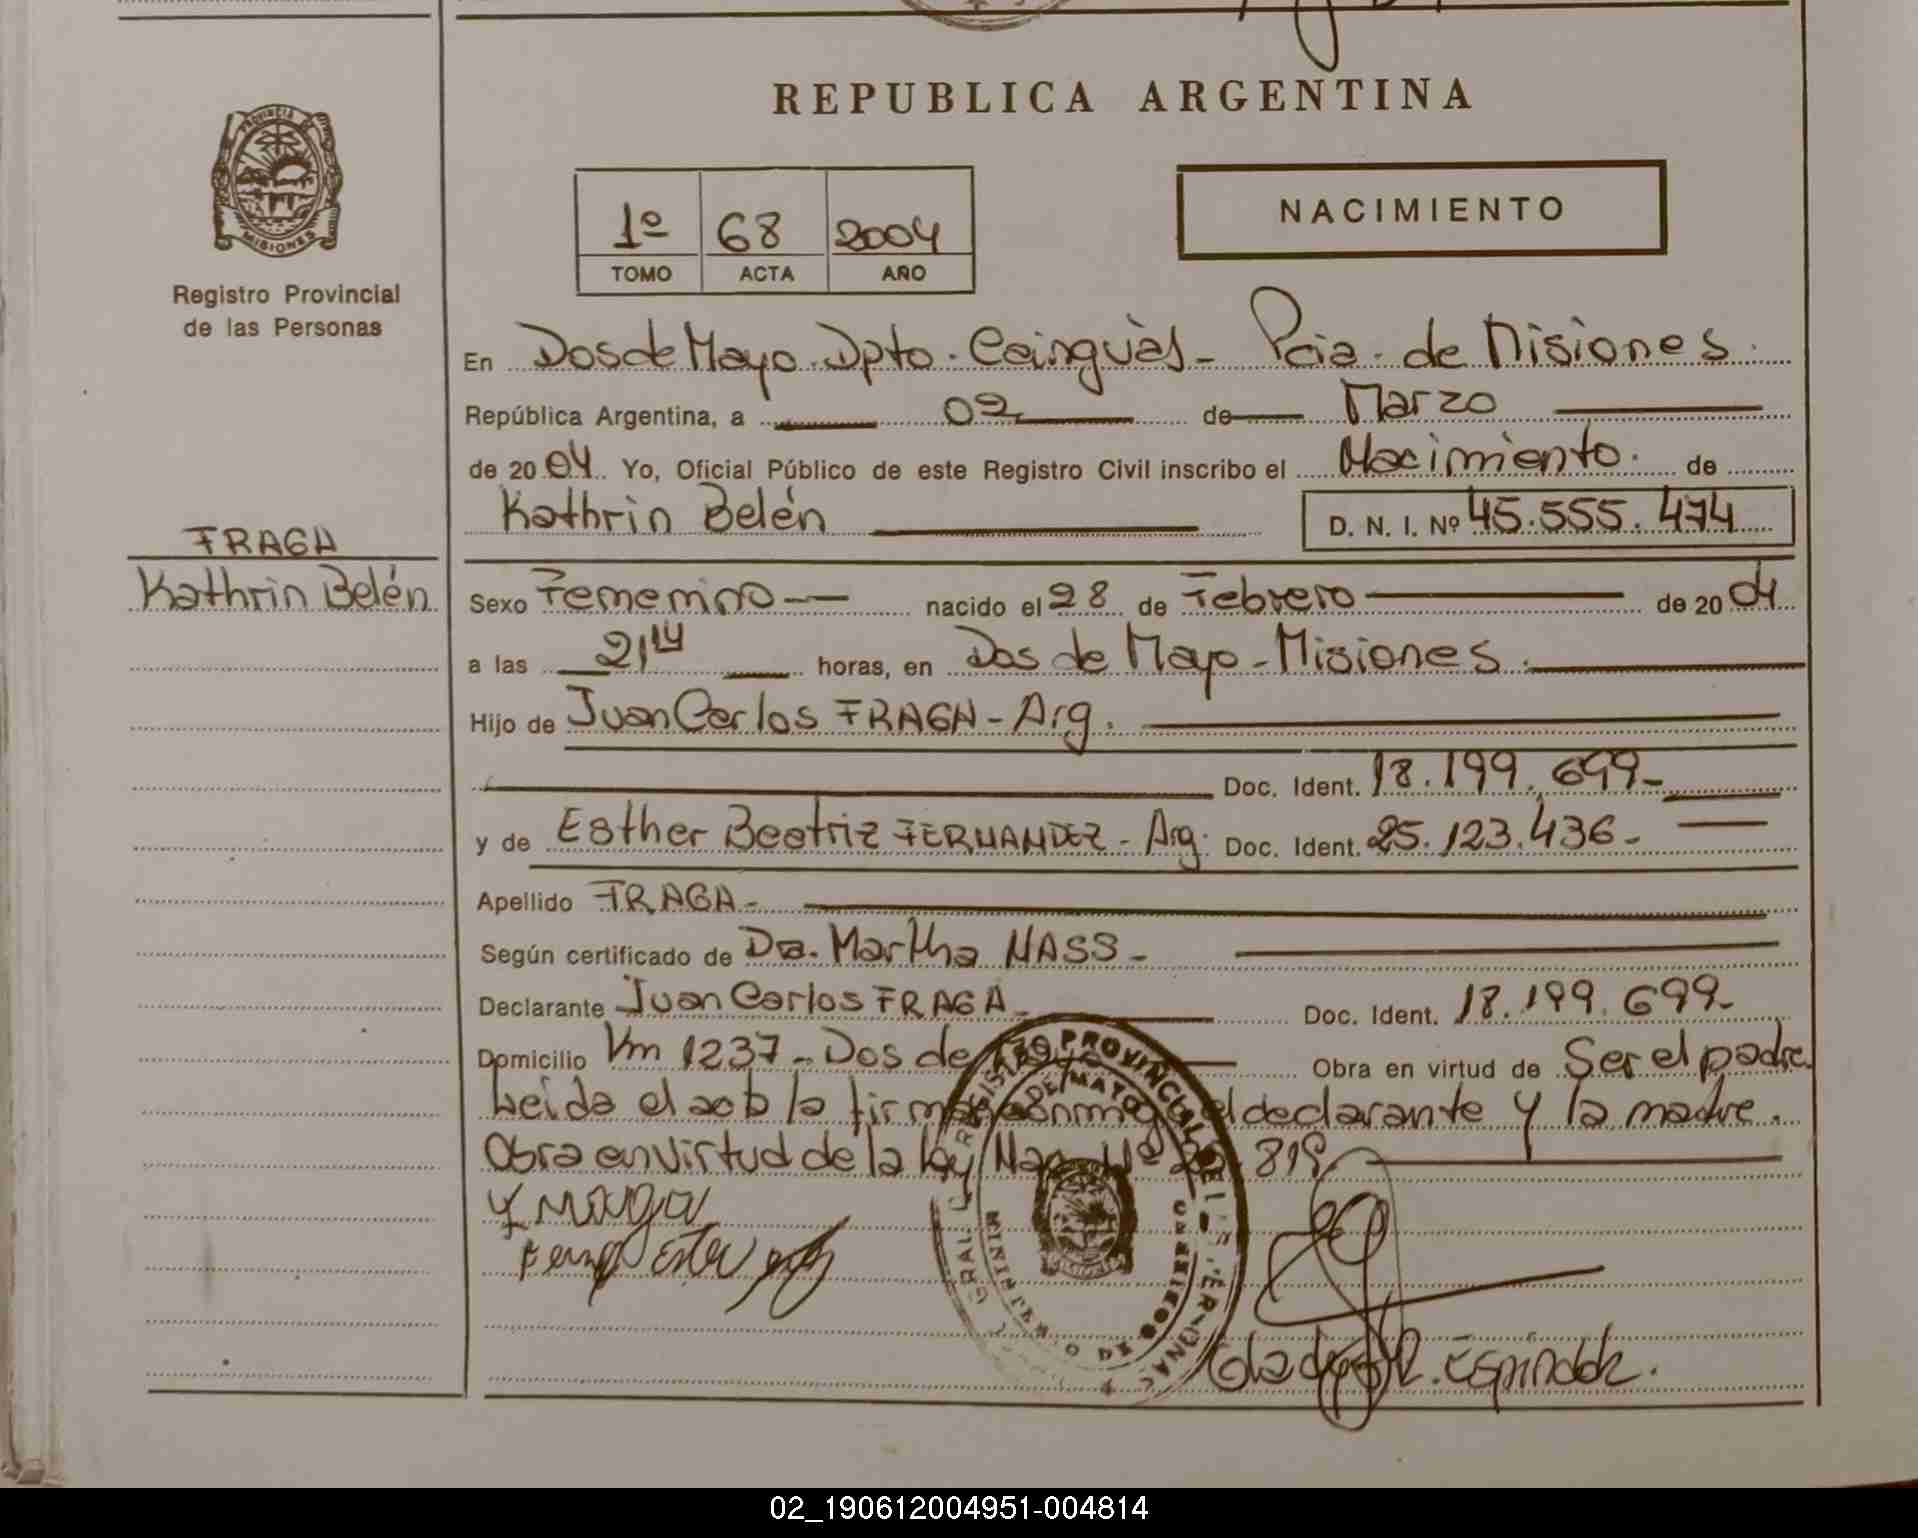 REPUBLICA ARGENTINA
PROVINCIA DE MISIONES
Registro Provincial
de las Personas
1º 68 2004
TOMO ACTA AÑO
NACIMIENTO
En Dos de Mayo - Dpto. Cainguàs - Pcia. de Misiones.
República Argentina, a 02 de Marzo
de 20 04 Yo, Oficial Público de este Registro Civil inscribo el Nacimiento. de
Kathrin Belén D. N. I. Nº 45.555.474
FRAGA
Kathrin Belén
Sexo Femenino nacido el 28 de Febrero de 20 04
a las 21 14 horas, en Dos de Mayo - Misiones.
Hijo de Juan Carlos FRAGA - Arg.
Doc. Ident. 18.199.699-
y de Esther Beatriz FERNANDEZ - Arg. Doc. Ident. 25.123.436-
Apellido FRAGA-
Según certificado de Dra. Martha NASS-
Declarante Juan Carlos FRAGA- Doc. Ident. 18.199.699-
Domicilio Km 1237 - Dos de Mayo Obra en virtud de Ser el padre
Leida el acta la firman conmigo el declarante y la madre.
Obra en virtud de la Ley Nac. Nº 819
Gladys R. Espindola.
02_190612004951-004814